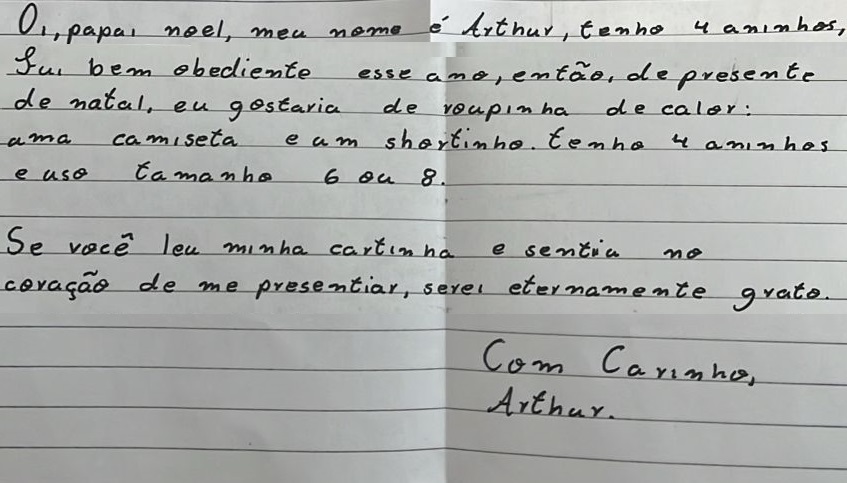 Oi, papai noel, meu nome é Arthur, tenho 4 aninhos,
fui bem obediente esse ano, então, de presente
de natal, eu gostaria de roupinha de calor:
uma camiseta e um shortinho. tenho 4 aninhos
e uso tamanho 6 ou 8.
Se você leu minha cartinha e sentiu no
coração de me presentiar, serei eternamente grato.
Com Carinho,
Arthur.